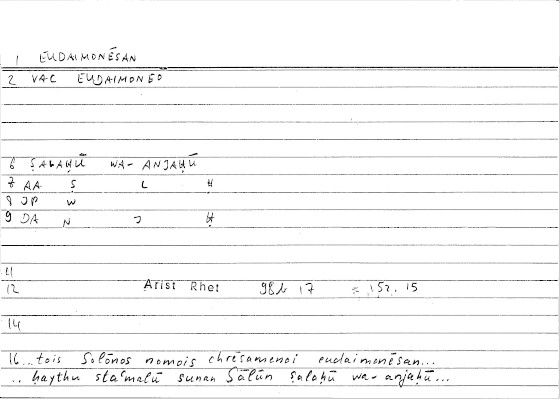 1 EUDAIMONĒSAN
2 VAC EUDAIMONEO
6 ṢALAḤŪ WA-ANJAḤŪ
7 AA Ṣ L Ḥ
8 JP W
9 JA N J Ḥ
11
12 Arist Rhet 98b 17 = 152.15
14
16 ...tois Solōnos nomois chrēsamenoi eudaimonēsan...
.. ḥaythu sta'malū sunan Sālūn ṣalaḥū wa-anjaḥū...